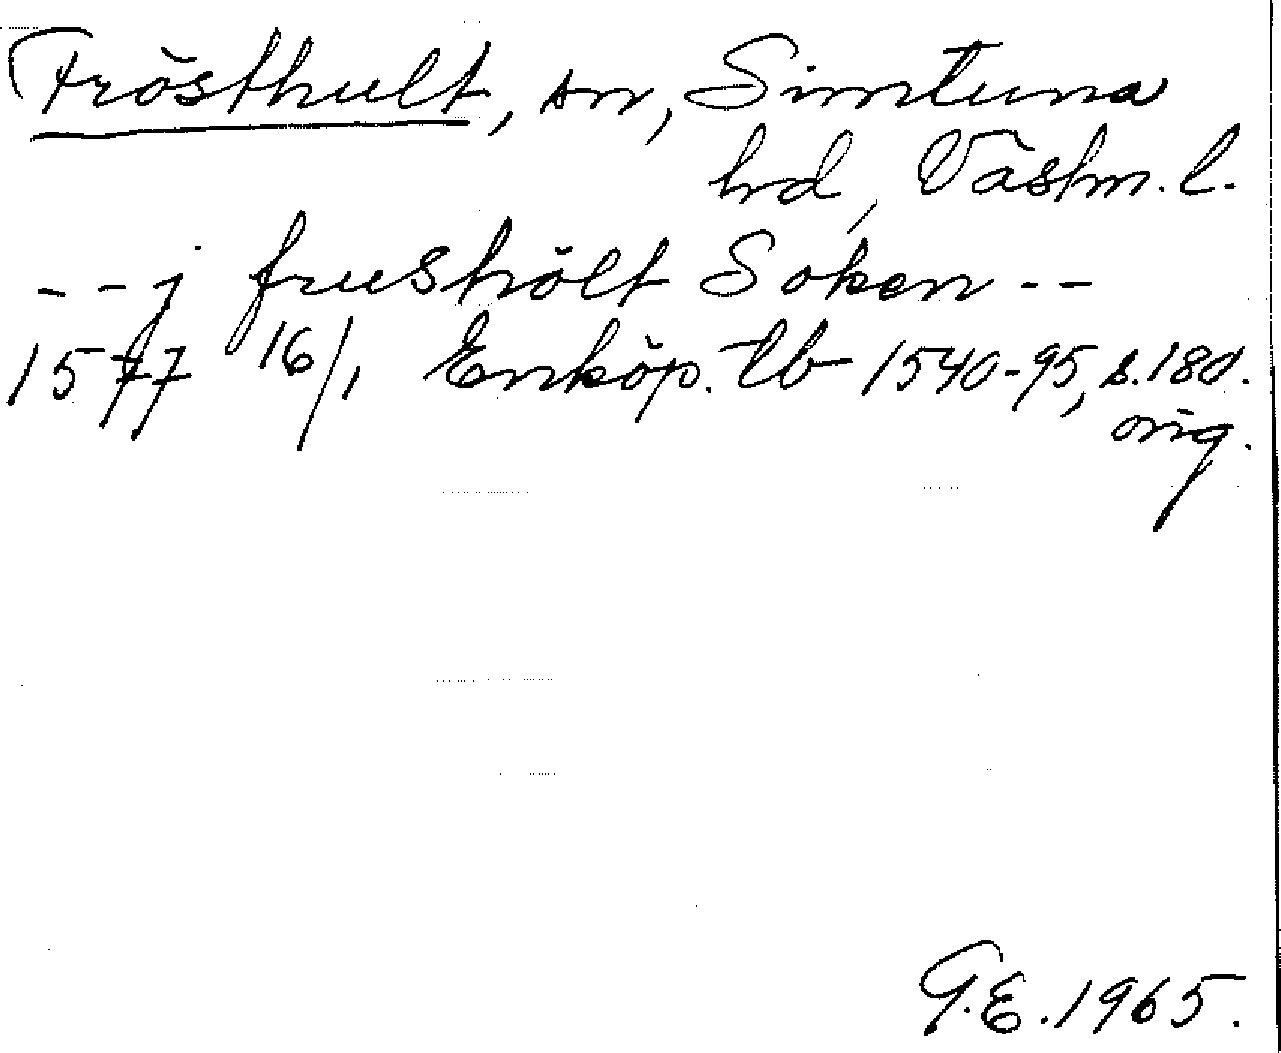 Frösthult, sn, Simtuna
hd, Västm. l.
--j frueshölt Soken --
1577 16/1 Enköp. tb 1540-95, s. 180.
orig.
G.E. 1965.